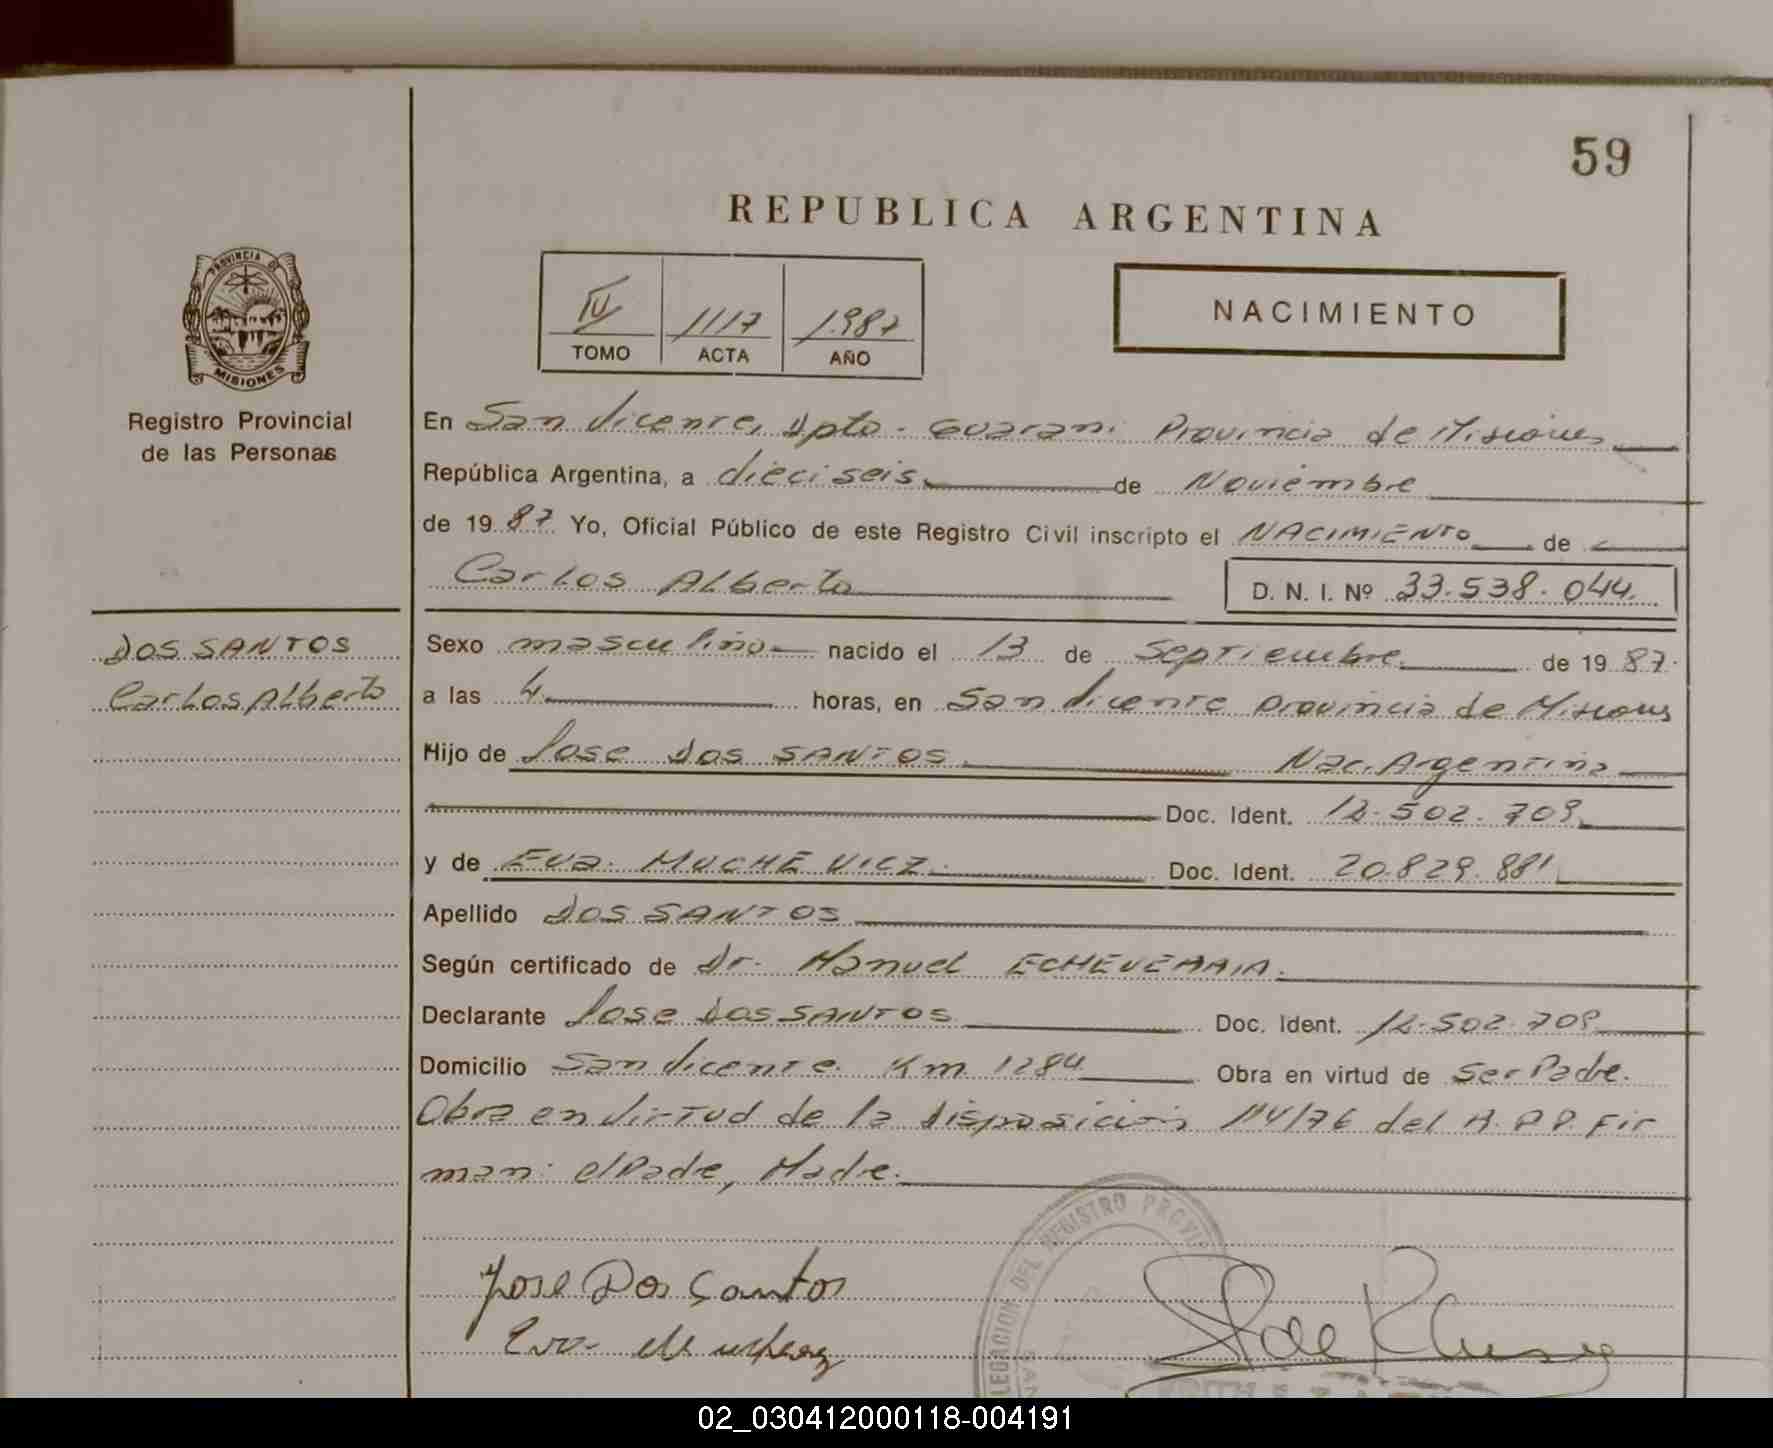 59
REPUBLICA ARGENTINA
PROVINCIA DE
MISIONES
Registro Provincial
de las Personas
IV 1117 1.987
TOMO ACTA AÑO
NACIMIENTO
En San Vicente, Dpto. Guarani Provincia de Misiones
República Argentina, a dieciseis de Noviembre
de 19 87 Yo, Oficial Público de este Registro Civil inscripto el NACIMIENTO de
Carlos Alberto D. N. I. Nº 33.538.044.
DOS SANTOS
Carlos Alberto
Sexo masculino nacido el 13 de Septiembre de 19 87.
a las 4 horas, en San Vicente Provincia de Misiones
Hijo de Jose Dos SANTOS Nac. Argentina
Doc. Ident. 12.502.709
y de Eva MUCHEVICZ Doc. Ident. 20.829.881
Apellido DOS SANTOS
Según certificado de Dr. Manuel ECHEVERRIA.
Declarante Jose Dos SANTOS Doc. Ident. 12.502.709
Domicilio San Vicente Km 1284 Obra en virtud de Ser Padre.
Obra en Virtud de la Disposición 114/76 del R.P.P. Fir
man: el Padre, Madre.
DELEGACION DEL REGISTRO
Jose Dos Santos
Eva
02_030412000118-004191